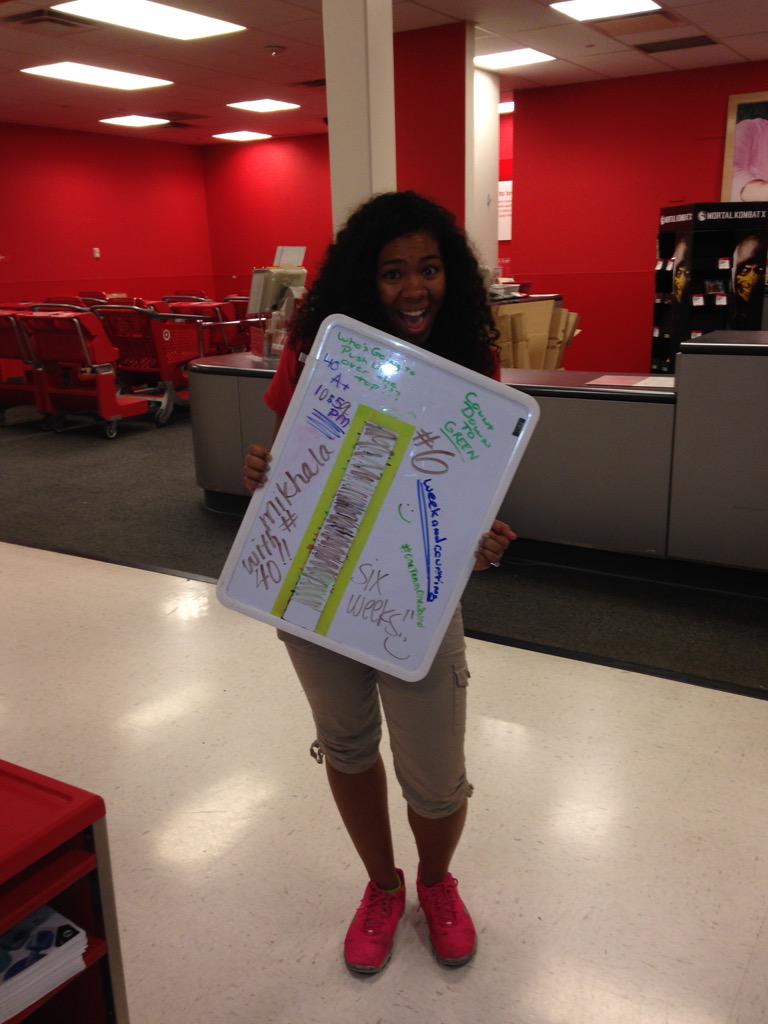 who's Going to
Push us
over the
top???
40
A+
10:52
pm
COUNT
DOWN
TO
GREEN
#6
week and counting
mikhala
with #
40!!
SIX
weeks"
MORTAL KOMBAT X